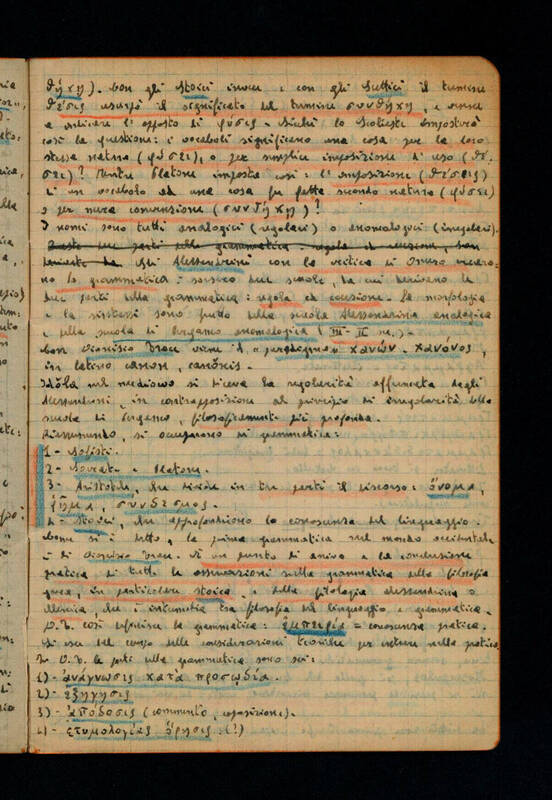 θήκη). Con gli Stoici invece e con gli Scettici il termine
θέσις usurpò il significato del termine συνθήκη, e venne
a indicare l'opposto di φύσις. Sicché lo Scoliaste imposterà
così la questione: i vocaboli significano una cosa per la loro
stessa natura (φύσει), o per semplice imposizione d'uso (θέ-
σει)? Mentre Platone imposta così: l'imposizione (θέσις)
di un vocabolo ad una cosa fu fatta secondo natura (φύσει)
o per mera convenzione (συνθήκη)?
I nomi sono tutti analogici (regolari) o anomalogici (irregolari).
Queste due parti della grammatica: regola ed eccezione, sono
Gli Alessandrini con la critica di Omero
no la grammatica: sorsero due scuole, da cui derivano le
due parti della grammatica: regola ed eccezione. La morfologia
e la sintassi sono frutto della scuola Alessandrina analogica
e della scuola di Pergamo anomalogica (III-II sec.).
Con Dionisio Trace viene il "paradigma" κανών, κανόνος,
in latino canon, canonis.
nel medioevo si rileva la regolarità affermata dagli
Alessandrini, in contrapposizione al principio di irregolarità della
scuola di Pergamo, filosoficamente più profonda.
Riassumendo, si occuparono di grammatica:
1 - Sofisti.
2 - Socrate e Platone.
3 - Aristotele, che divide in tre parti il discorso: ὄνομα,
ῥῆμα, σύνδεσμος.
4 - Stoici, che approfondirono la conoscenza del linguaggio.
Come si è detto, la prima grammatica nel mondo occidentale
è di Dionisio Trace. È un punto di arrivo e la conclusione
pratica di tutte le osservazioni sulla grammatica della filosofia
greca, in particolare stoica, e della filologia alessandrina e
ellenica, che è intermedia tra filosofia del linguaggio e grammatica.
D.T. così definisce la grammatica: ἐμπειρία = conoscenza pratica.
Si esce dal campo delle considerazioni teoriche per entrare nella pratica.
In D.T. le parti della grammatica sono sei:
1) - ἀνάγνωσις κατὰ προσῳδία.
2) - ἐξήγησις
3) - ἀπόδοσις (commento, esposizione).
4) - ἐτυμολογίας εὕρησις (!)